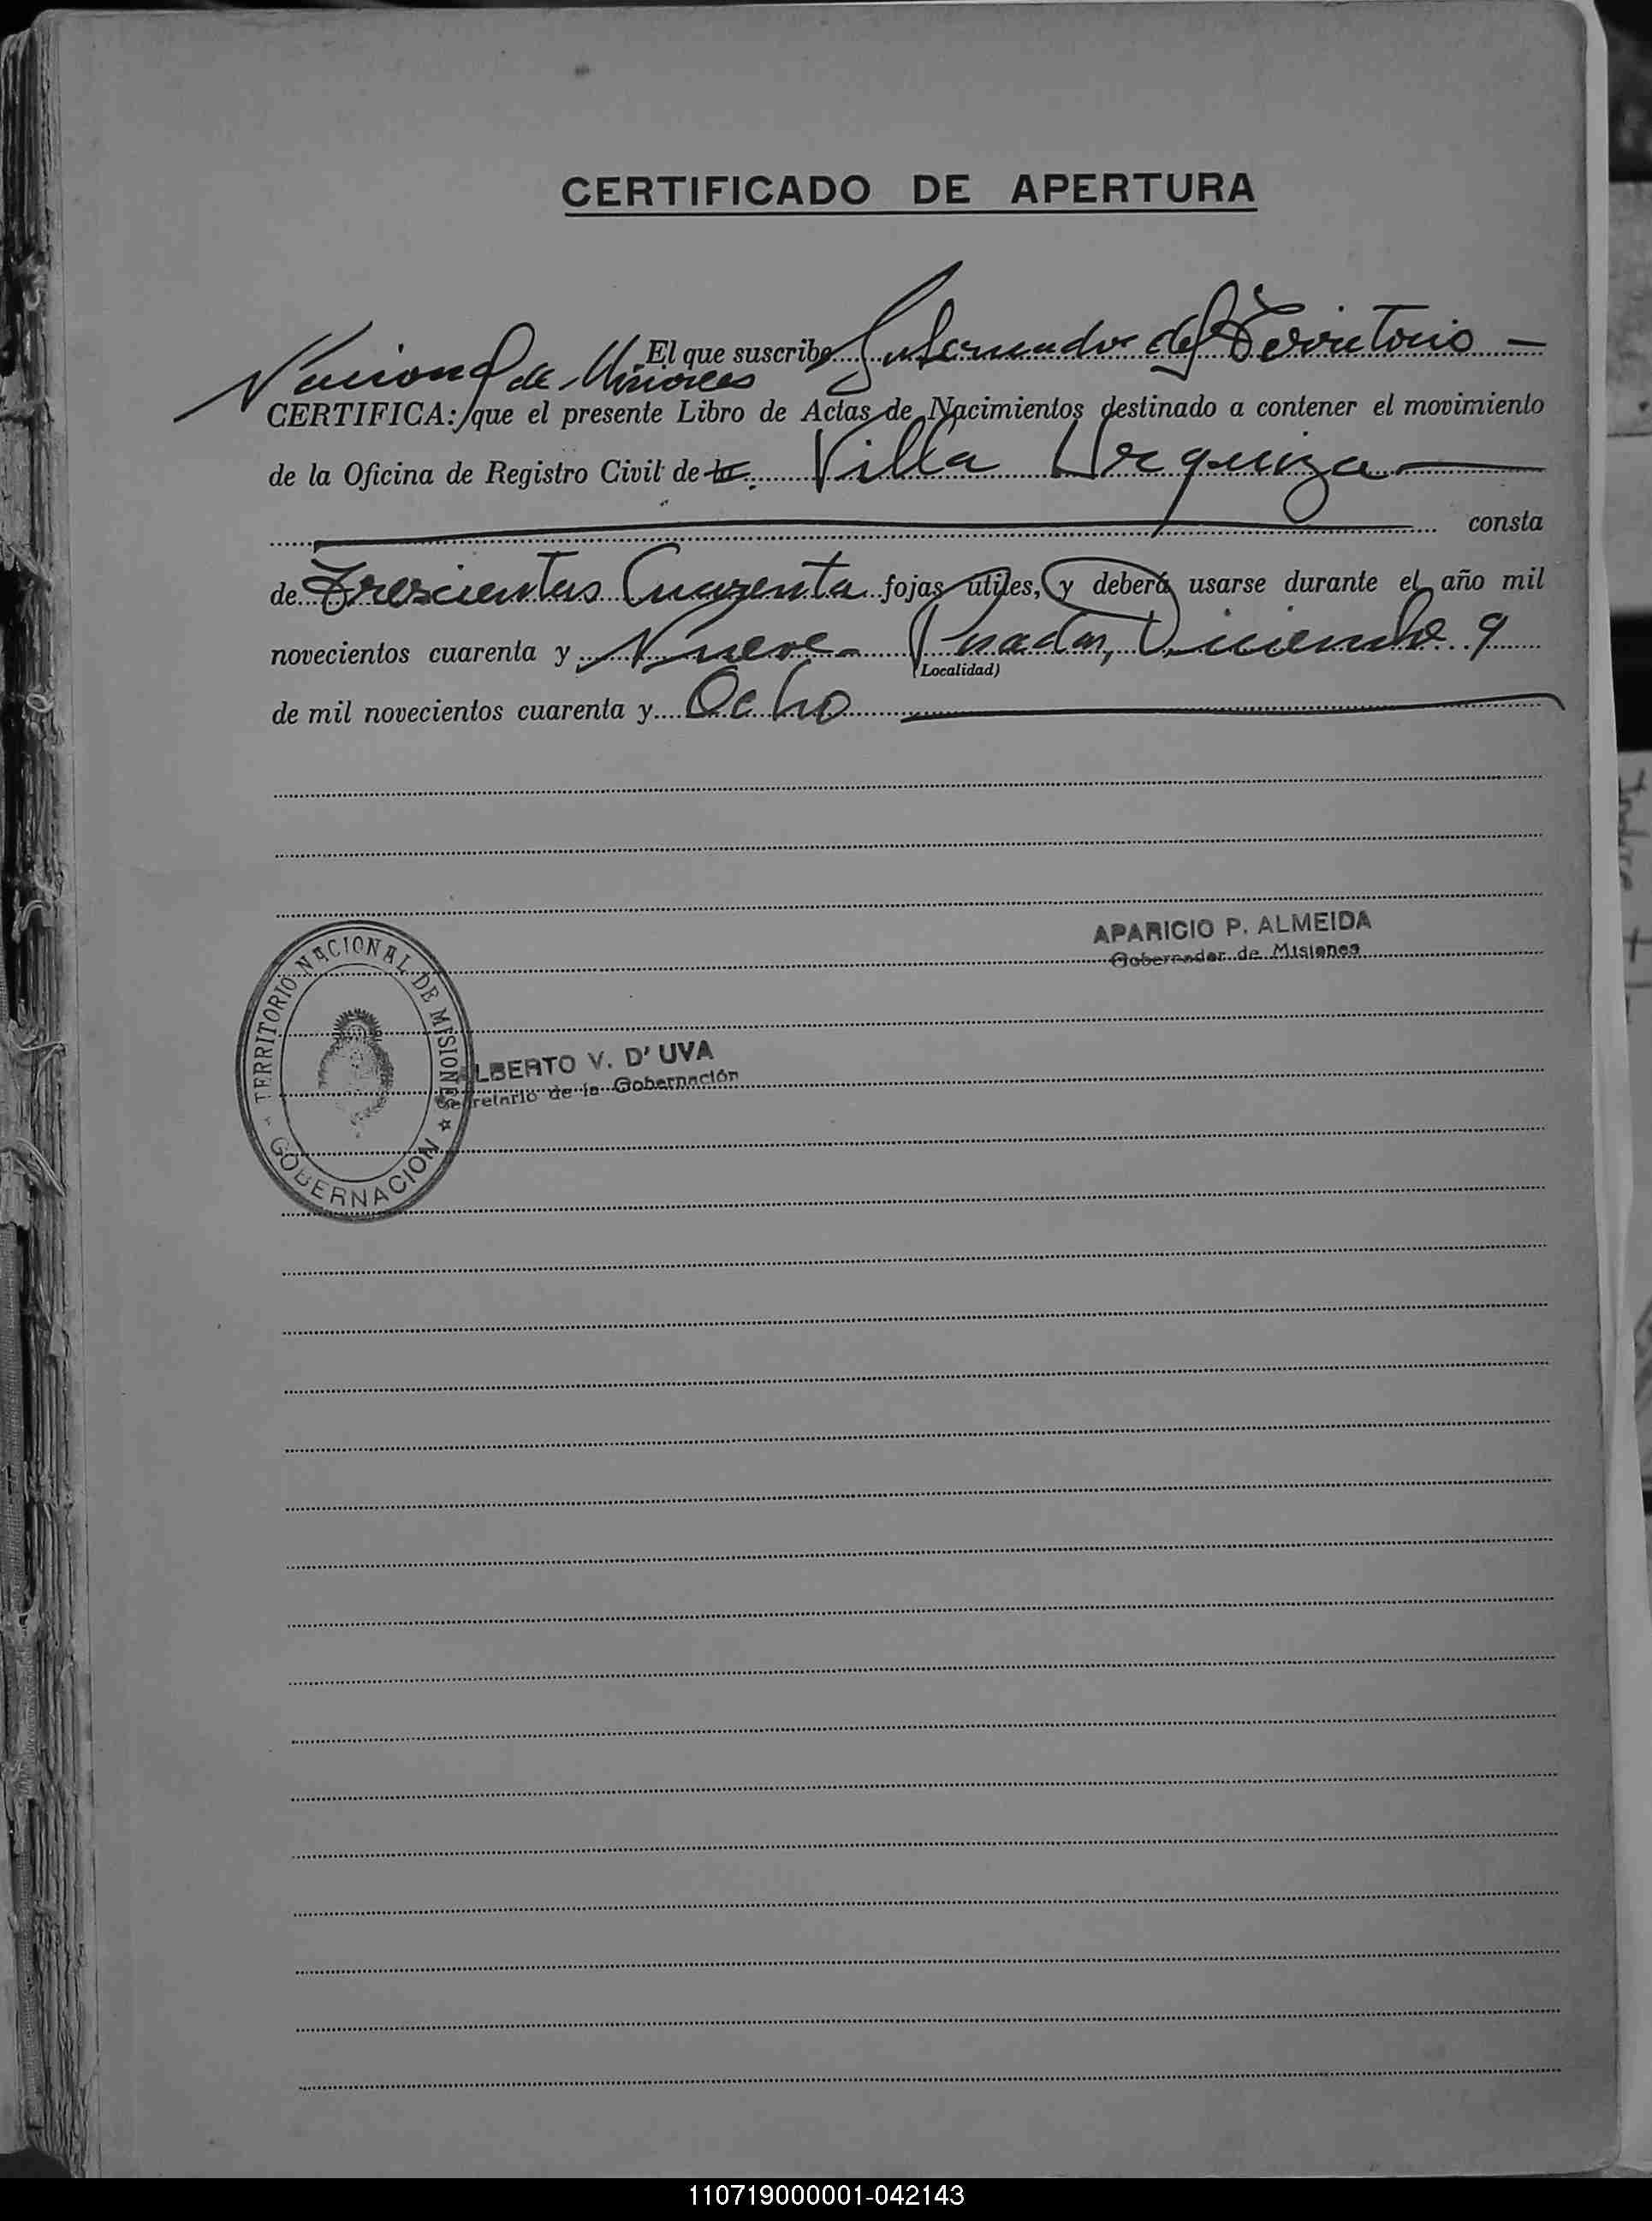 CERTIFICADO DE APERTURA
El que suscribe Gobernador del Territorio
Nacional de Misiones
CERTIFICA: que el presente Libro de Actas de Nacimientos destinado a contener el movimiento
de la Oficina de Registro Civil de la Villa Urquiza
consta
de Trescientas Cuarenta fojas útiles, y deberá usarse durante el año mil
novecientos cuarenta y Nueve Posadas, Diciembre 9
(Localidad)
de mil novecientos cuarenta y Ocho
APARICIO P. ALMEIDA
Gobernador de Misiones
TERRITORIO NACIONAL DE MISIONES
GOBERNACION
LBERTO V. D' UVA
Secretario de la Gobernación
110719000001-042143